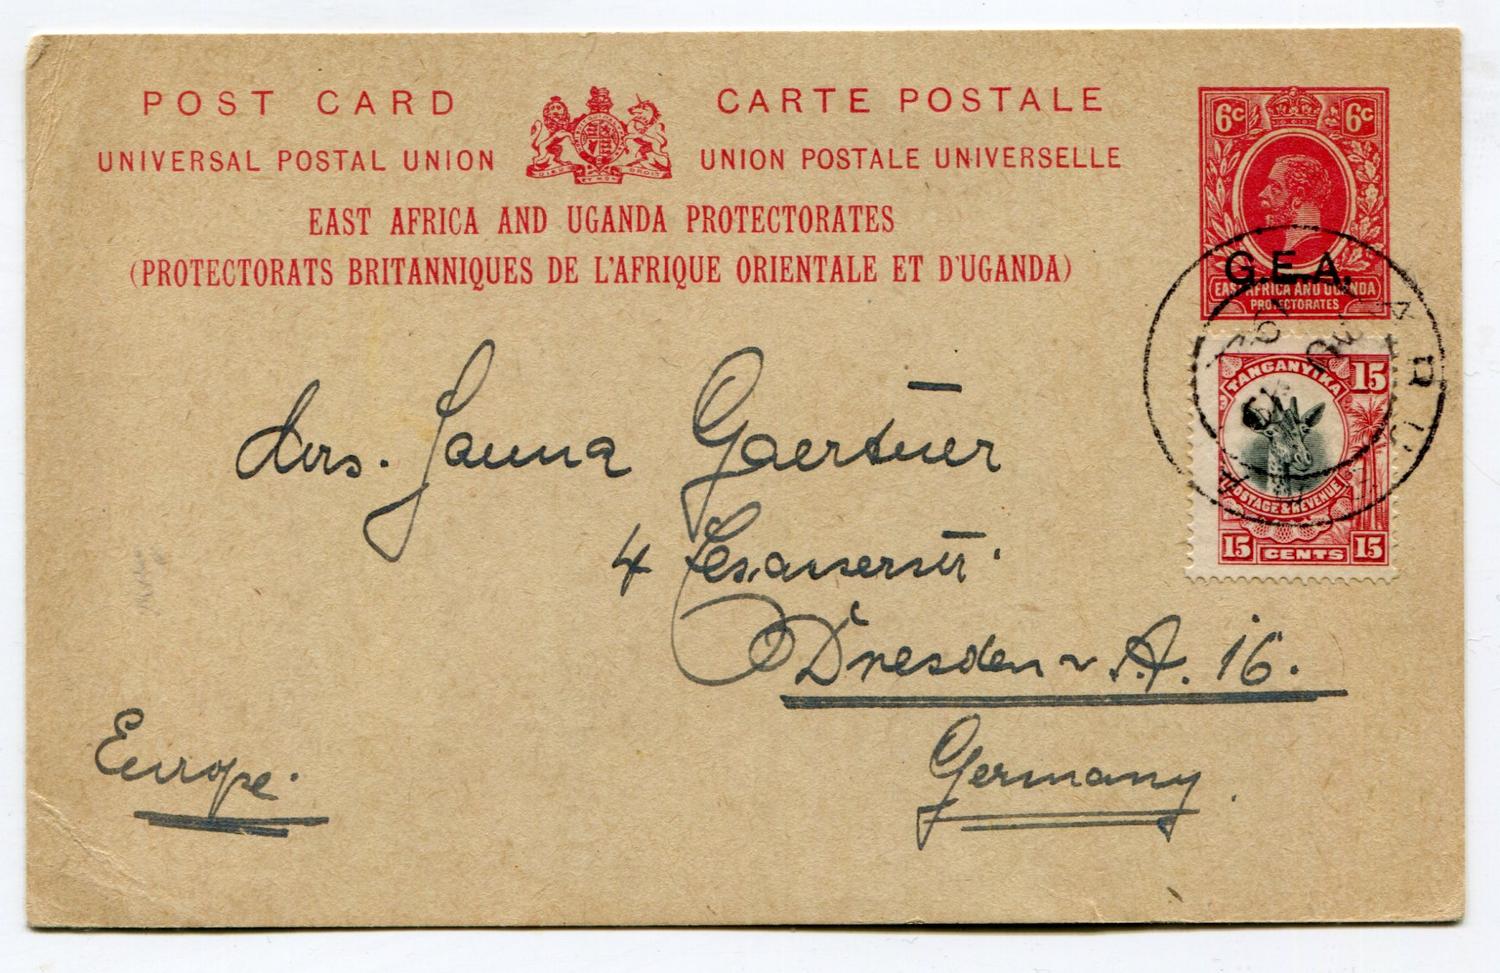 POST CARD CARTE POSTALE
UNIVERSAL POSTAL UNION UNION POSTALE UNIVERSELLE
DIEU ET MON DROIT
EAST AFRICA AND UGANDA PROTECTORATES
(PROTECTORATS BRITANNIQUES DE L'AFRIQUE ORIENTALE ET D'UGANDA)
6c 6c
G.E.A.
EAST AFRICA AND UGANDA
PROTECTORATES
TANGANYIKA 15
POSTAGE & REVENUE
15 CENTS 15
Gaertner
4
Dresden A. 16.
Germany.
Europe.